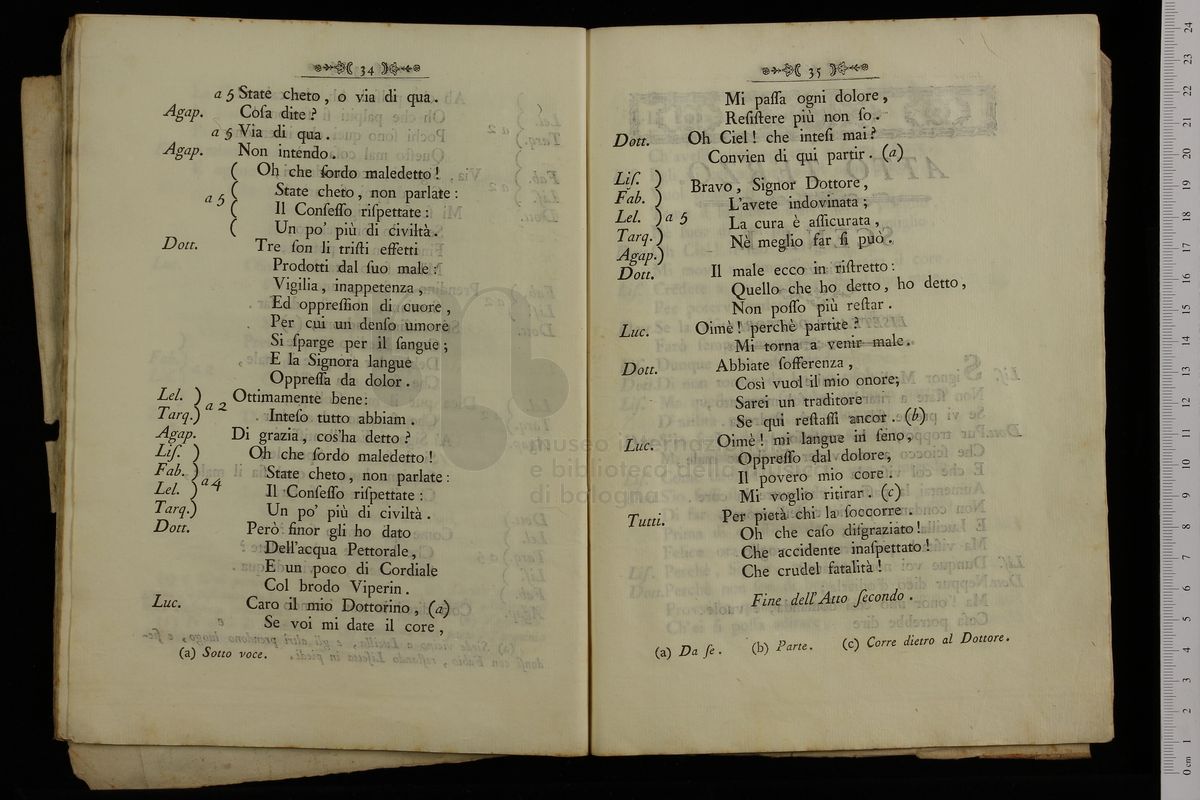 34
a 5 State cheto, o via di qua.
Agap. Coſa dite?
a 5 Via di qua.
Agap. Non intendo.
( Oh che ſordo maledetto!
a 5 ( State cheto, non parlate:
( Il Conſeſſo riſpettate:
( Un po' più di civiltà.
Dott. Tre ſon li triſti effetti
Prodotti dal ſuo male:
Vigilia, inappetenza,
Ed oppreſſion di cuore,
Per cui un denſo umore
Si ſparge per il ſangue;
E la Signora langue
Oppreſſa da dolor.
Lel. ) a 2 Ottimamente bene:
Tarq.) Inteſo tutto abbiam.
Agap. Di grazia, cos'ha detto?
Liſ. ) Oh che ſordo maledetto!
Fab. ) State cheto, non parlate:
Lel. ) a 4 Il Conſeſſo riſpettate:
Tarq.) Un po' più di civiltà.
Dott. Però finor gli ho dato
Dell'acqua Pettorale,
E un poco di Cordiale
Col brodo Viperin.
Luc. Caro il mio Dottorino, (a)
Se voi mi date il core,
(a) Sotto voce.
35
Mi paſſa ogni dolore,
Reſiſtere più non ſo.
Dott. Oh Ciel! che inteſi mai?
Convien di qui partir. (a)
Liſ. ) Bravo, Signor Dottore,
Fab. ) L'avete indovinata;
Lel. ) a 5 La cura è aſſicurata,
Tarq.) Nè meglio far ſi può.
Agap.)
Dott. Il male ecco in riſtretto:
Quello che ho detto, ho detto,
Non poſſo più reſtar.
Luc. Oimè! perchè partite?
Mi torna a venir male.
Dott. Abbiate ſofferenza,
Così vuol il mio onore;
Sarei un traditore
Se qui reſtaſſi ancor. (b)
Luc. Oimè! mi langue in ſeno,
Oppreſſo dal dolore,
Il povero mio core.
Mi voglio ritirar. (c)
Tutti. Per pietà chi la ſoccorre.
Oh che caſo diſgraziato!
Che accidente inaſpettato!
Che crudel fatalità!
Fine dell'Atto ſecondo.
(a) Da ſe. (b) Parte. (c) Corre dietro al Dottore.
museo internaz
e biblioteca della musica
di bologna